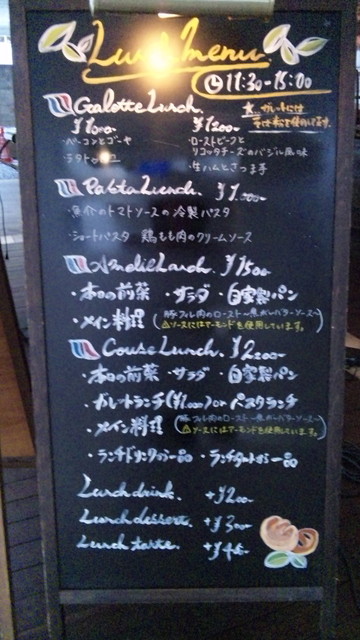 Lunch menu
11:30-15:00
Galette Lunch.
※ガレットには
そば粉を使用してます。
¥1000- ¥1200-
・ベーコンとゴーヤ ・ローストビーフと
リコッタチーズのバジル風味
・ラタトゥ
・生ハムとさつま芋
Pasta Lunch. ¥1,000-
・魚介のトマトソースの冷製パスタ
・ショートパスタ 鶏もも肉のクリームソース
Lunch. ¥1500
・本日の前菜 ・サラダ ・自家製パン
・メイン料理 (豚フィレ肉のロースト〜焦がしバターソース〜
⚠ソースにはアーモンドを使用しています。)
Couse Lunch. ¥2200-
・本日の前菜 ・サラダ ・自家製パン
・ガレットランチ(¥1000) or パスタランチ
・メイン料理 (豚フィレ肉のロースト〜焦がしバターソース〜
⚠ソースにはアーモンドを使用しています。)
・ランチドリンクから一品 ・ランチタルトから一品
Lunch drink. +¥200-
Lunch dessert. +¥300-
Lunch tarte. +¥